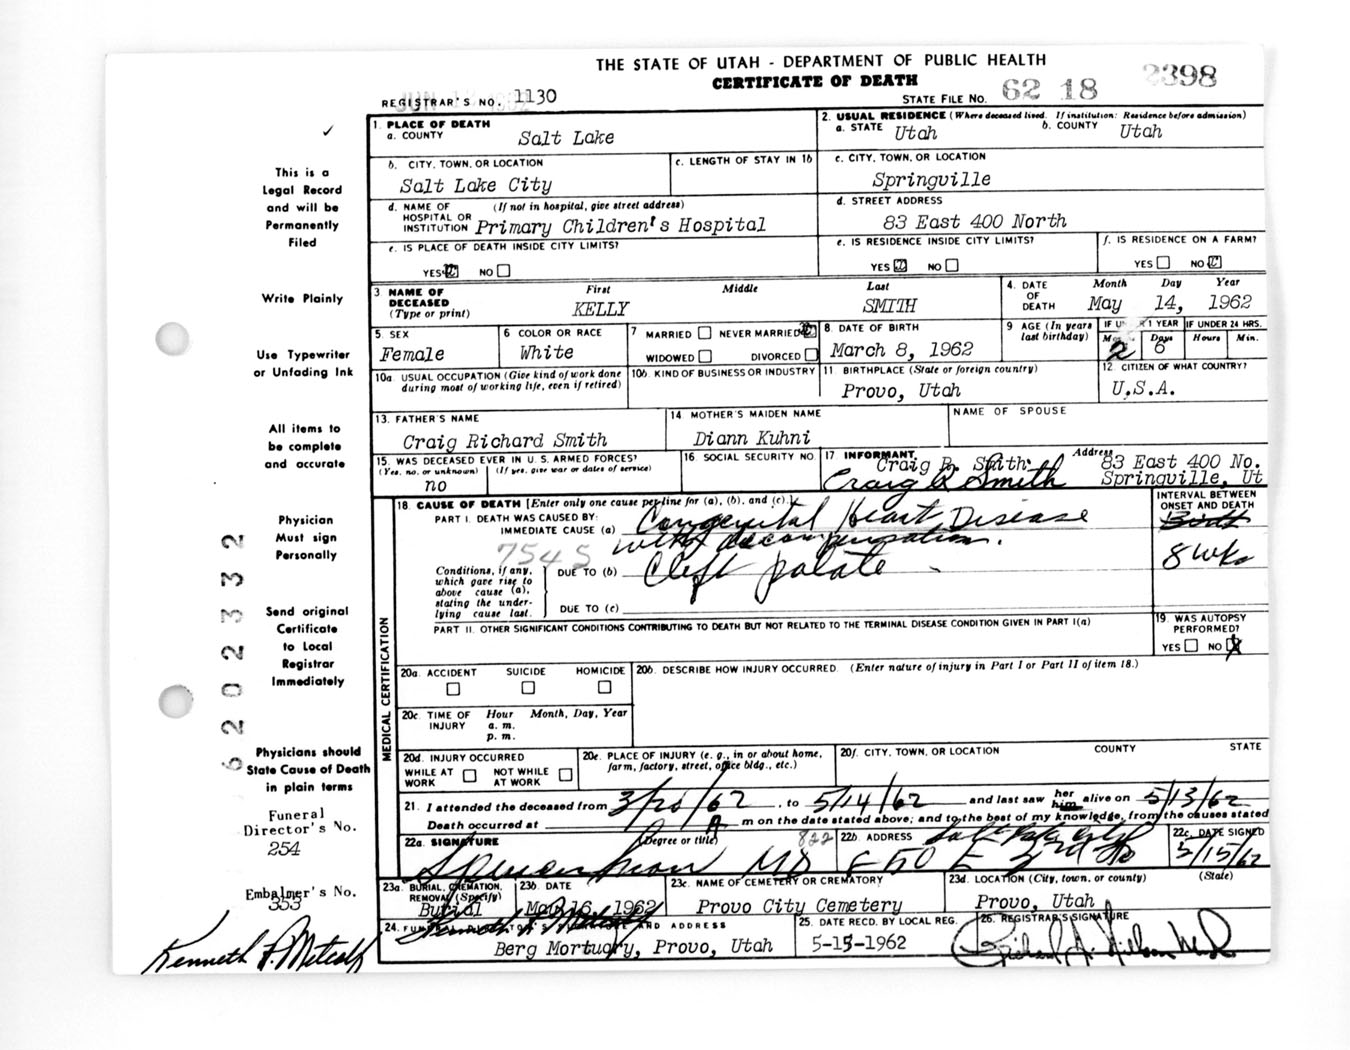 THE STATE OF UTAH - DEPARTMENT OF PUBLIC HEALTH
CERTIFICATE OF DEATH
REGISTRAR'S NO. 1130
STATE FILE NO. 62 18 2398
1. PLACE OF DEATH
a. COUNTY Salt Lake
2. USUAL RESIDENCE (Where deceased lived. If institution: Residence before admission)
a. STATE Utah b. COUNTY Utah
b. CITY, TOWN, OR LOCATION
Salt Lake City
c. LENGTH OF STAY IN 1b
c. CITY, TOWN, OR LOCATION
Springville
d. NAME OF HOSPITAL OR INSTITUTION (If not in hospital, give street address)
Primary Children's Hospital
d. STREET ADDRESS
83 East 400 North
e. IS PLACE OF DEATH INSIDE CITY LIMITS?
YES NO
e. IS RESIDENCE INSIDE CITY LIMITS?
YES NO
f. IS RESIDENCE ON A FARM?
YES NO
3 NAME OF DECEASED (Type or print)
First Middle Last
KELLY SMITH
4. DATE OF DEATH
Month Day Year
May 14, 1962
5. SEX
Female
6 COLOR OR RACE
White
7 MARRIED NEVER MARRIED
WIDOWED DIVORCED
8. DATE OF BIRTH
March 8, 1962
9 AGE (In years last birthday)
IF UNDER 1 YEAR IF UNDER 24 HRS.
Mos. Days Hours Min.
2 6
10a. USUAL OCCUPATION (Give kind of work done during most of working life, even if retired)
10b. KIND OF BUSINESS OR INDUSTRY
11. BIRTHPLACE (State or foreign country)
Provo, Utah
12. CITIZEN OF WHAT COUNTRY?
U.S.A.
13. FATHER'S NAME
Craig Richard Smith
14. MOTHER'S MAIDEN NAME
Diann Kuhni
NAME OF SPOUSE
15. WAS DECEASED EVER IN U.S. ARMED FORCES?
(Yes, no, or unknown) (If yes, give war or dates of service)
no
16. SOCIAL SECURITY NO.
17 INFORMANT Address
Craig R. Smith 83 East 400 No.
Craig R Smith Springville, Ut
18. CAUSE OF DEATH [Enter only one cause per line for (a), (b), and (c).]
PART I. DEATH WAS CAUSED BY:
IMMEDIATE CAUSE (a) Congenital Heart Disease
with decompensation.
7545
Conditions, if any, which gave rise to above cause (a), stating the underlying cause last.
DUE TO (b) Cleft palate
DUE TO (c)
INTERVAL BETWEEN ONSET AND DEATH
Birth
8 wks
PART II. OTHER SIGNIFICANT CONDITIONS CONTRIBUTING TO DEATH BUT NOT RELATED TO THE TERMINAL DISEASE CONDITION GIVEN IN PART I(a)
19. WAS AUTOPSY PERFORMED?
YES NO X
MEDICAL CERTIFICATION
20a. ACCIDENT SUICIDE HOMICIDE
20b. DESCRIBE HOW INJURY OCCURRED. (Enter nature of injury in Part I or Part II of item 18.)
20c. TIME OF INJURY
Hour Month, Day, Year
a. m.
p. m.
20d. INJURY OCCURRED
WHILE AT WORK NOT WHILE AT WORK
20e. PLACE OF INJURY (e. g., in or about home, farm, factory, street, office bldg., etc.)
20f. CITY, TOWN, OR LOCATION COUNTY STATE
21. I attended the deceased from 3/20/62, to 5/14/62 and last saw her him alive on 5/13/62
Death occurred at A m on the date stated above; and to the best of my knowledge, from the causes stated
22a. SIGNATURE (Degree or title) 822
MD
22b. ADDRESS Salt Lake City
22c. DATE SIGNED
5/15/62
23a. BURIAL, CREMATION, REMOVAL (Specify)
Burial
23b. DATE
May 16, 1962
23c. NAME OF CEMETERY OR CREMATORY
Provo City Cemetery
23d. LOCATION (City, town, or county) (State)
Provo, Utah
24. FUNERAL DIRECTOR'S SIGNATURE AND ADDRESS
Kenneth F. Metcalf
Berg Mortuary, Provo, Utah
25. DATE RECD. BY LOCAL REG.
5-15-1962
26. REGISTRAR'S SIGNATURE
This is a
Legal Record
and will be
Permanently
Filed
Write Plainly
Use Typewriter
or Unfading Ink
All items to
be complete
and accurate
Physician
Must sign
Personally
Send original
Certificate
to Local
Registrar
Immediately
Physicians should
State Cause of Death
in plain terms
Funeral
Director's No.
254
Embalmer's No.
353
Kenneth F. Metcalf